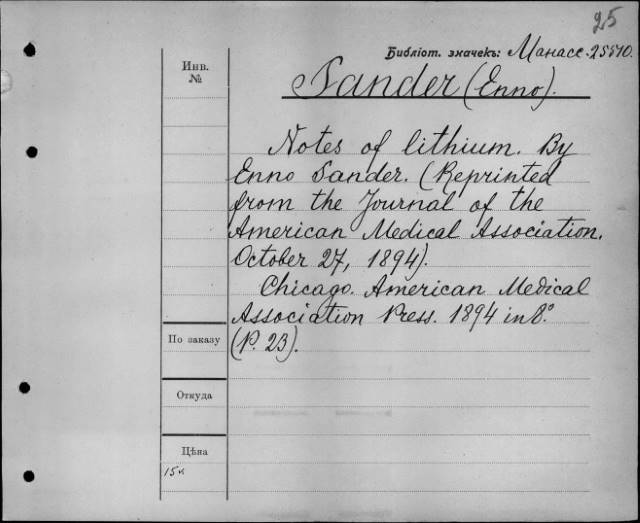 25
Библіот. значекъ: Манасс. 25510.
Инв.
№
Sander (Enno).
Notes of lithium. By
Enno Sander. (Reprinted
from the Journal of the
American Medical Association.
October 27, 1894).
Chicago. American Medical
Association Press. 1894 in 8.°
(P. 23).
По заказу
Откуда
Цѣна
15к